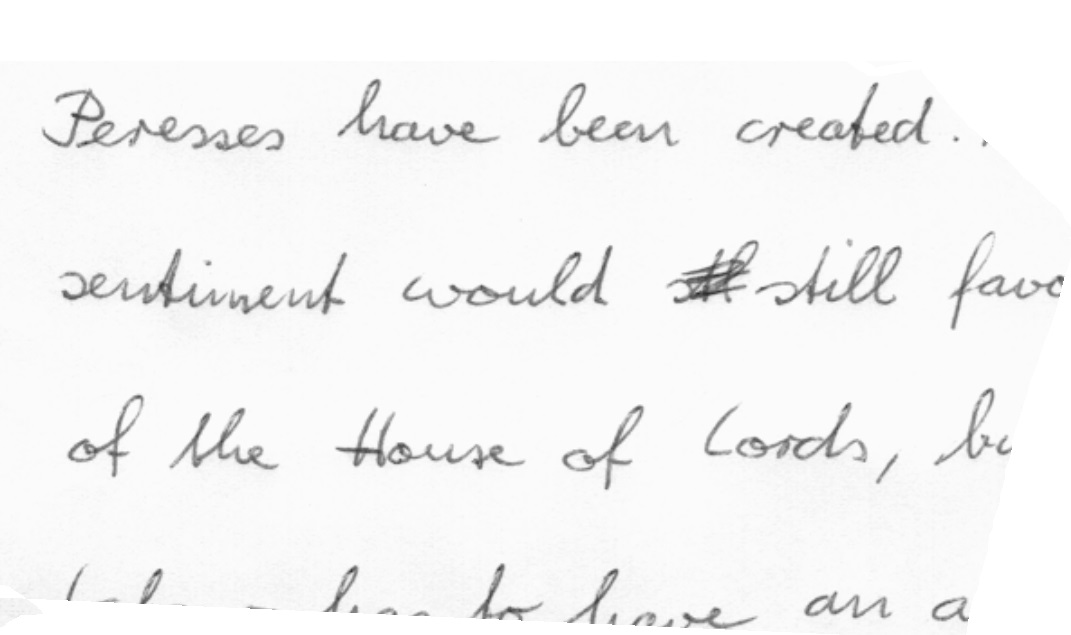 Peresses have been created.
sentiment would still favo
of the House of Lords, bu
to have an a